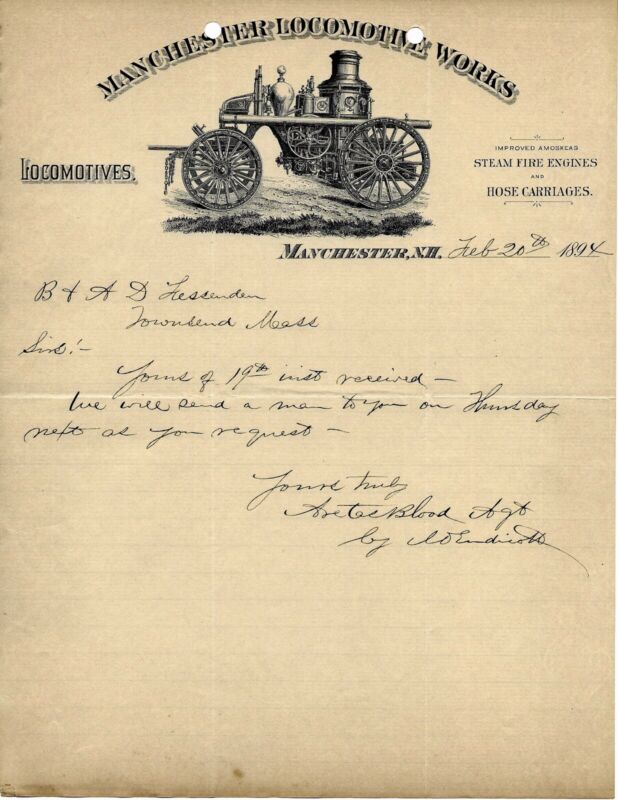 MANCHESTER LOCOMOTIVE WORKS
LOCOMOTIVES.
IMPROVED AMOSKEAG
STEAM FIRE ENGINES
AND
HOSE CARRIAGES.
MANCHESTER, N.H. Feb 20th 1894
B & A D Fessenden
Townsend Mass
Sirs!-
Yours of 19th inst received -
We will send a man to you on Thursday
next as you request -
Yours truly
Aretas Blood Agt
by Endicott